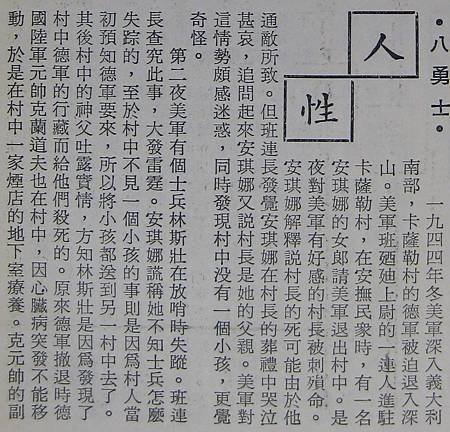 •八勇士•
人性
一九四四年冬美軍深入義大利
南部，卡薩勒村的德軍被迫退入深
山。美軍班廼廸上尉的一連人進駐
卡薩勒村，在安撫民衆時，有一名
安琪娜的女郎請美軍退出村中。是
夜對美軍有好感的村長被刺殞命。
安琪娜解釋說村長的死可能由於他
通敵所致。但班連長發覺安琪娜在村長的葬禮中哭泣
甚哀，追問起來安琪娜又說村長是她的父親。美軍對
這情勢頗感迷惑，同時發現村中没有一個小孩，更覺
奇怪。
第二夜美軍有個士兵林斯壯在放哨時失蹤。班連
長查究此事，大發雷霆。安琪娜謊稱她不知士兵怎麽
失踪的，至於村中不見一個小孩的事則是因爲村人當
初預知德軍要來，所以將小孩都送到另一村中去了。
其後村中的神父吐露實情，方知林斯壯是因爲發現了
村中德軍的行藏而給他們殺死的。原來德軍撤退時德
國陸軍元帥克蘭道夫也在村中，因心臟病突發不能移
動，於是在村中一家煙店的地下室療養。克元帥的副